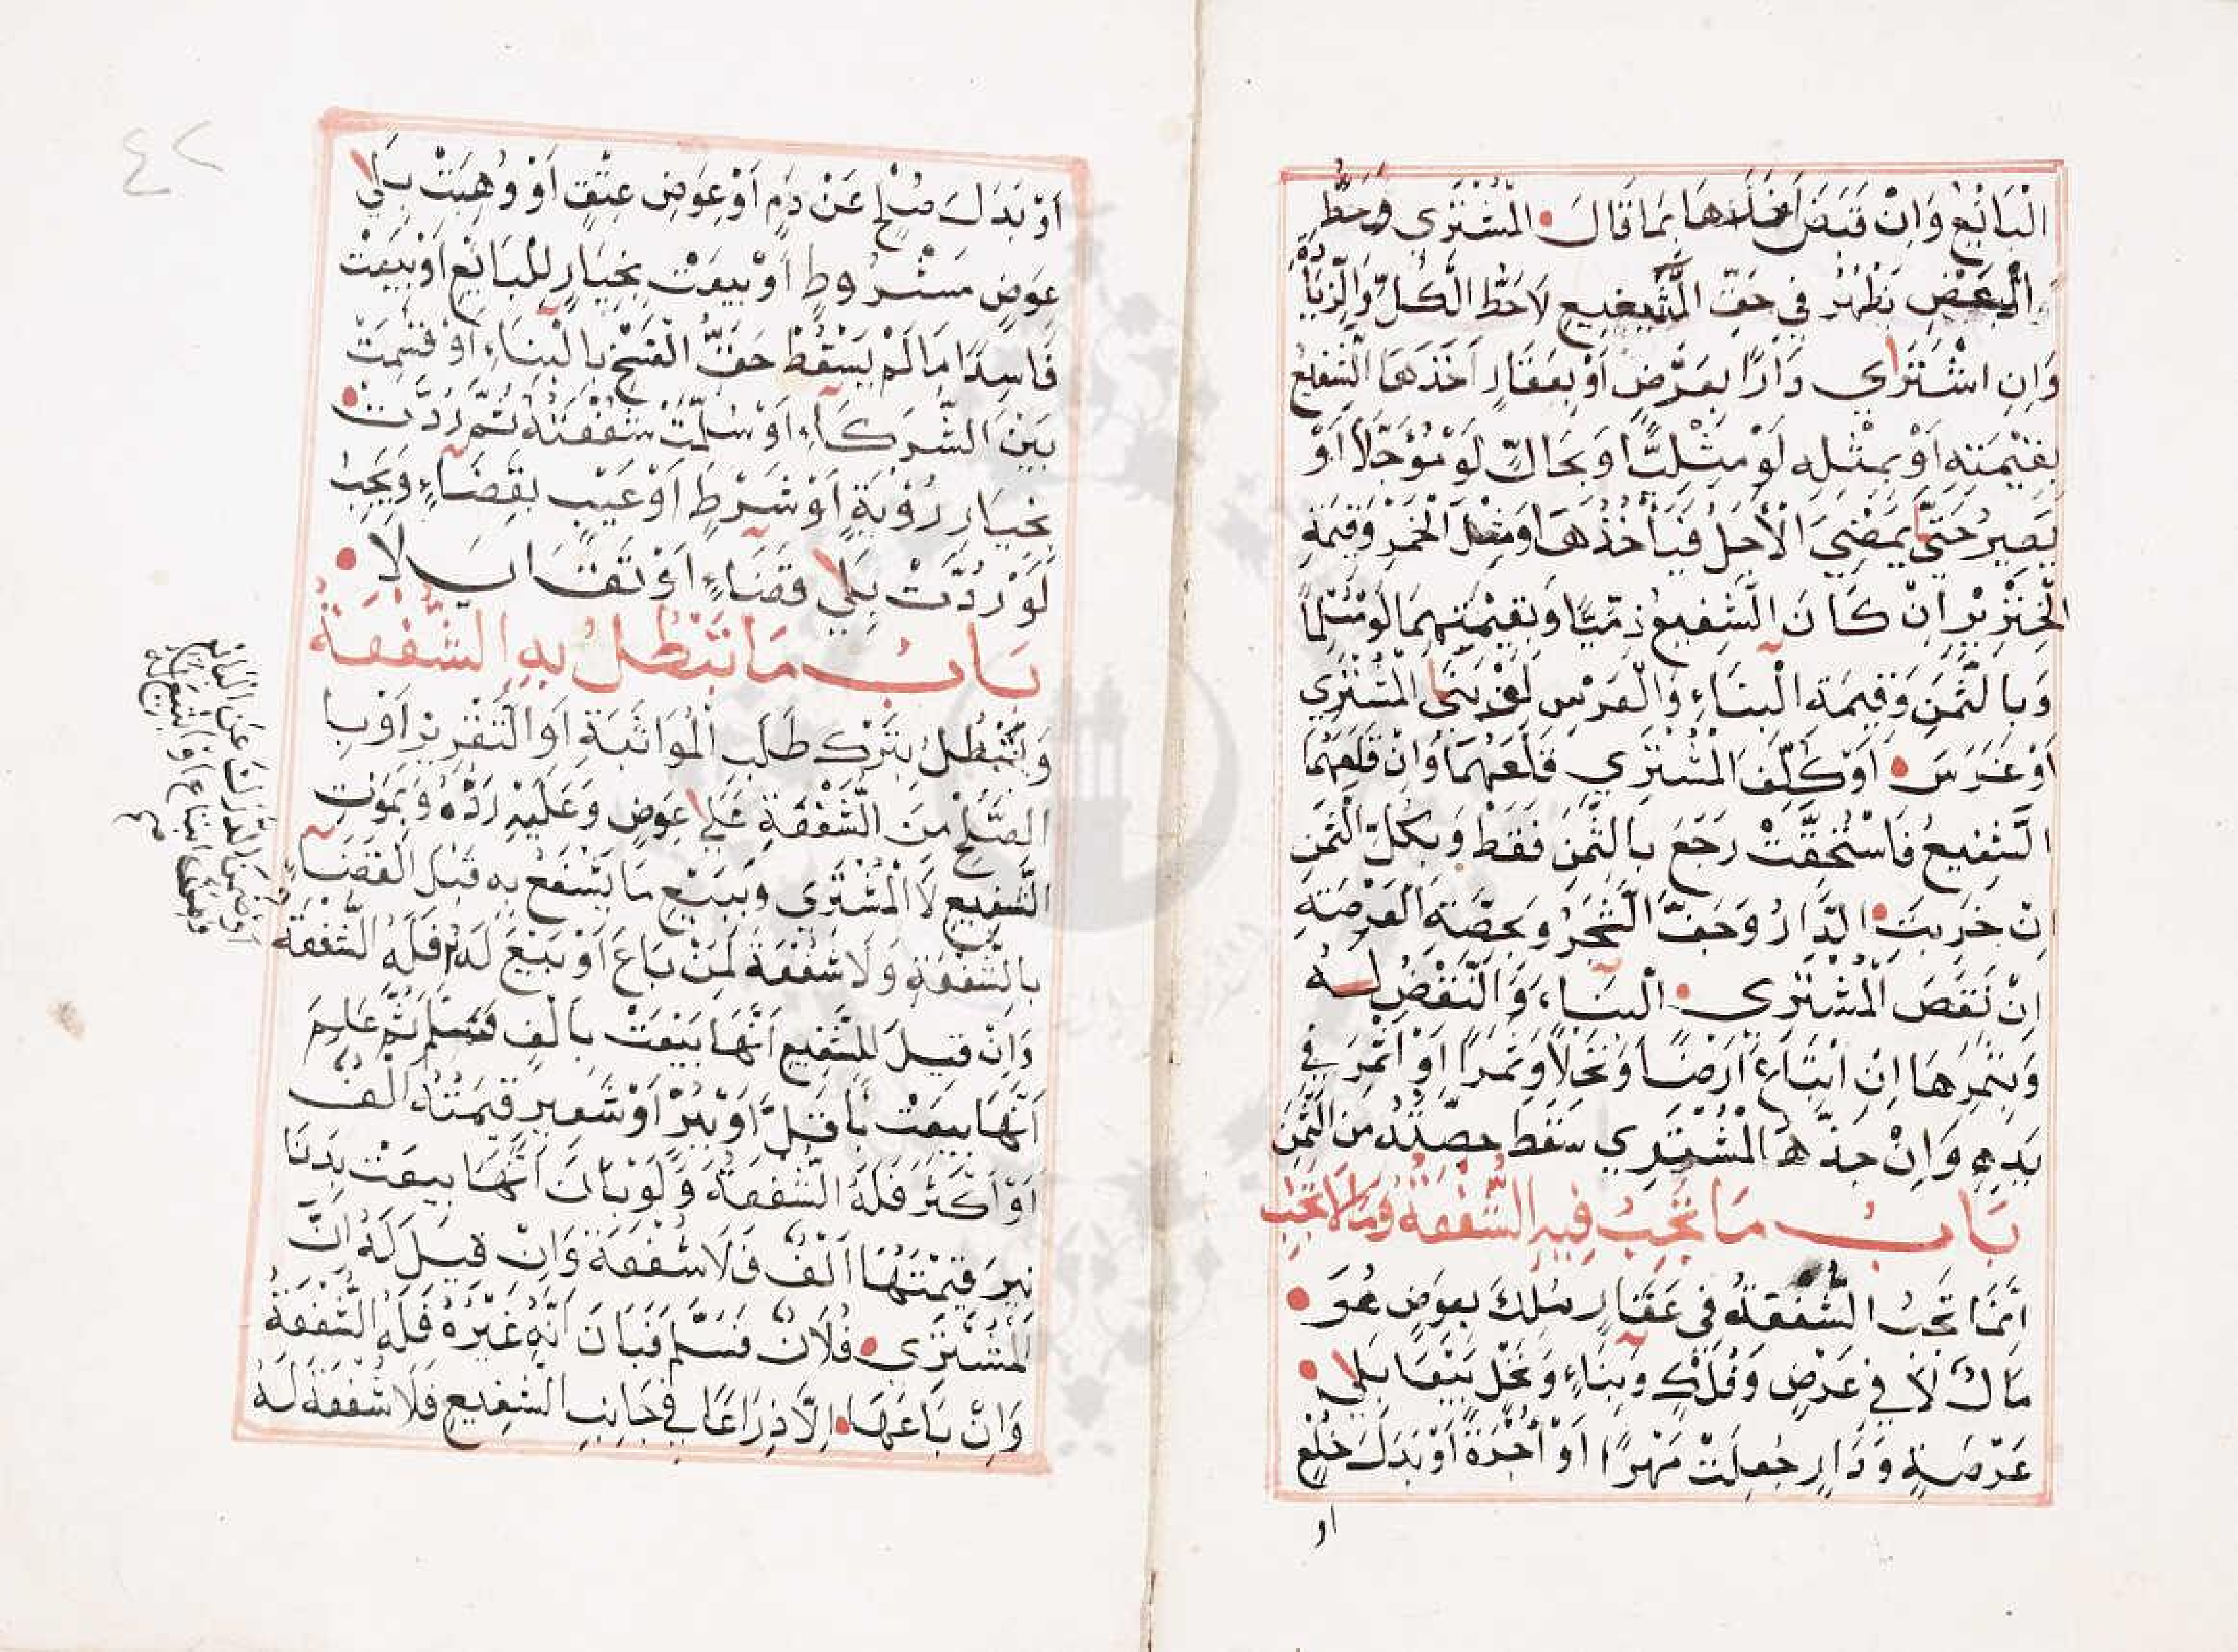 الْبَائِعُ وَاِنْ قَبَضَ اَخَذَهَا بِمَا قَالَ الْمُشْتَرِي وَحَطُّ
الْبَعْضِ يَظْهَرُ فِي حَقِّ الشَّفِيعِ لَا حَطُّ الْكُلِّ وَالزِّيَادَةُ
وَاِنِ اشْتَرٰي دَارًا بِعَرْضٍ اَوْ بِعَقَارٍ اَخَذَهَا الشَّفِيعُ
بِقِيْمَتِهِ اَوْ بِمِثْلِهِ لَوْ مِثْلِيًّا وَبِحَالٍّ لَوْ مُؤَجَّلًا اَوْ
يَصِيرُ حَتّٰي يَمْضِيَ الْاَجَلُ فَيَأْخُذُهَا وَمِثْلِ الْخَمْرِ وَقِيمَةِ
الْخِنْزِيْرِ اِنْ كَانَ الشَّفِيعُ ذِمِّيًّا وَبِقِيْمَتِهِمَا لَوْ مُسْلِمًا
وَبِالثَّمَنِ وَقِيمَةِ الْبِنَآءِ وَالْغَرْسِ لَوْ بَنَي الْمُشْتَرِي
اَوْ غَرَسَ اَوْ كَلَّفَ الْمُشْتَرِي قَلْعَهُمَا وَاِنْ قَلَعَهُمَا
الشَّفِيعُ فَاسْتُحِقَّتْ رَجَعَ بِالثَّمَنِ فَقَطْ وَبِكُلِّ الثَّمَنِ
اِنْ خَرِبَتِ الدَّارُ وَجَفَّ الشَّجَرُ وَبِحِصَّةِ الْعَرْصَةِ
اِنْ نَقَضَ الْمُشْتَرِي الْبِنَآءَ وَالنَّقْضُ لَهُ
وَبِثَمَرِهَا اِنِ ابْتَاعَ اَرْضًا وَنَخْلًا وَثَمَرًا اَوْ اَثْمَرَ فِي
يَدِهِ وَاِنْ جَذَّهُ الْمُشْتَرِي سَقَطَ حِصَّتُهُ مِنَ الثَّمَنِ
بَابُ مَا تَجِبُ فِيهِ الشُّفْعَةُ وَمَا لَا تَجِبُ
اِنَّمَا تَجِبُ الشُّفْعَةُ فِي عَقَارٍ مُلِكَ بِعِوَضٍ هُوَ
مَالٌ لَا فِي عَرْضٍ وَفُلْكٍ وَبِنَآءٍ وَنَخْلٍ بِيْعَا بِلَا
عَرْصَةٍ وَدَارٍ جُعِلَتْ مَهْرًا اَوْ اُجْرَةً اَوْ بَدَلَ خُلْعٍ
او
٤٢
اَوْ بَدَلَ صُلْحٍ عَنْ دَمٍ اَوْ عِوَضِ عِتْقٍ اَوْ وُهِبَتْ بِلَا
عِوَضٍ مَشْرُوطٍ اَوْ بِيعَتْ بِخِيَارٍ لِلْبَائِعِ اَوْ بِيعَتْ
فَاسِدًا مَا لَمْ يَسْقُطْ حَقُّ الْفَسْخِ بِالْبِنَآءِ اَوْ قُسِمَتْ
بَيْنَ الشُّرَكَآءِ اَوْ سُلِّمَتْ شُفْعَتُهُ ثُمَّ رُدَّتْ
بِخِيَارِ رُؤْيَةٍ اَوْ شَرْطٍ اَوْ عَيْبٍ بِقَضَآءٍ وَيَجِبُ
لَوْ رُدَّتْ بِلَا قَضَآءٍ اَوْ تَقَايَلَا
بَابُ مَا تَبْطُلُ بِهِ الشُّفْعَةُ
وَتَبْطُلُ بِتَرْكِ طَلَبِ الْمُوَاثَبَةِ اَوِ التَّقْرِيْرِ اَوْ بِا
الصُّلْحِ مِنَ الشُّفْعَةِ عَلٰي عِوَضٍ وَعَلَيْهِ رَدُّهُ وَبِمَوْتِ
الشَّفِيعِ لَا الْمُشْتَرِي وَبِبَيْعِ مَا يَشْفَعُ بِهِ قَبْلَ الْقَضَآءِ
بِالشُّفْعَةِ وَلَا شُفْعَةَ لِمَنْ بَاعَ اَوْ بِيْعَ لَهُ فَلَهُ الشُّفْعَةُ
وَاِنْ قِيلَ لِلشَّفِيعِ اَنَّهَا بِيْعَتْ بِاَلْفٍ فَسَلَّمَ ثُمَّ عَلِمَ
اَنَّهَا بِيعَتْ بِاَقَلَّ اَوْ بِبُرٍّ اَوْ شَعِيرٍ قِيمَتُهُ اَلْفٌ
اَوْ اَكْثَرُ فَلَهُ الشُّفْعَةُ وَلَوْ بَانَ اَنَّهَا بِيعَتْ بِدَنَا
نِيرَ قِيمْتُهَا اَلْفٌ فَلَا شُفْعَةَ وَاِنْ قِيلَ لَهُ اِنَّ
الْمُشْتَرِي فُلَانٌ فَسَلَّمَ فَبَانَ اَنَّهُ غَيْرُهُ فَلَهُ الشُّفْعَةُ
وَاِنْ بَاعَهَا اِلَّا ذِرَاعًا فِي جَانِبِ الشَّفِيعِ فَلَا شُفْعَةَ لَهُ